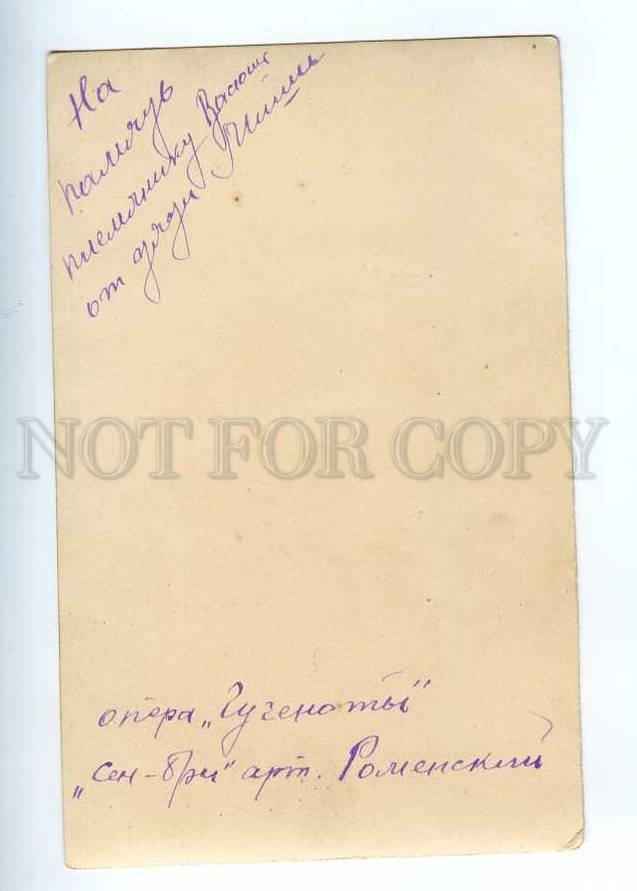 На
память
племянику
от дяди
NOT FOR COPY
опера „Гугеноты"
„Сен-Бри" арт. Роменский